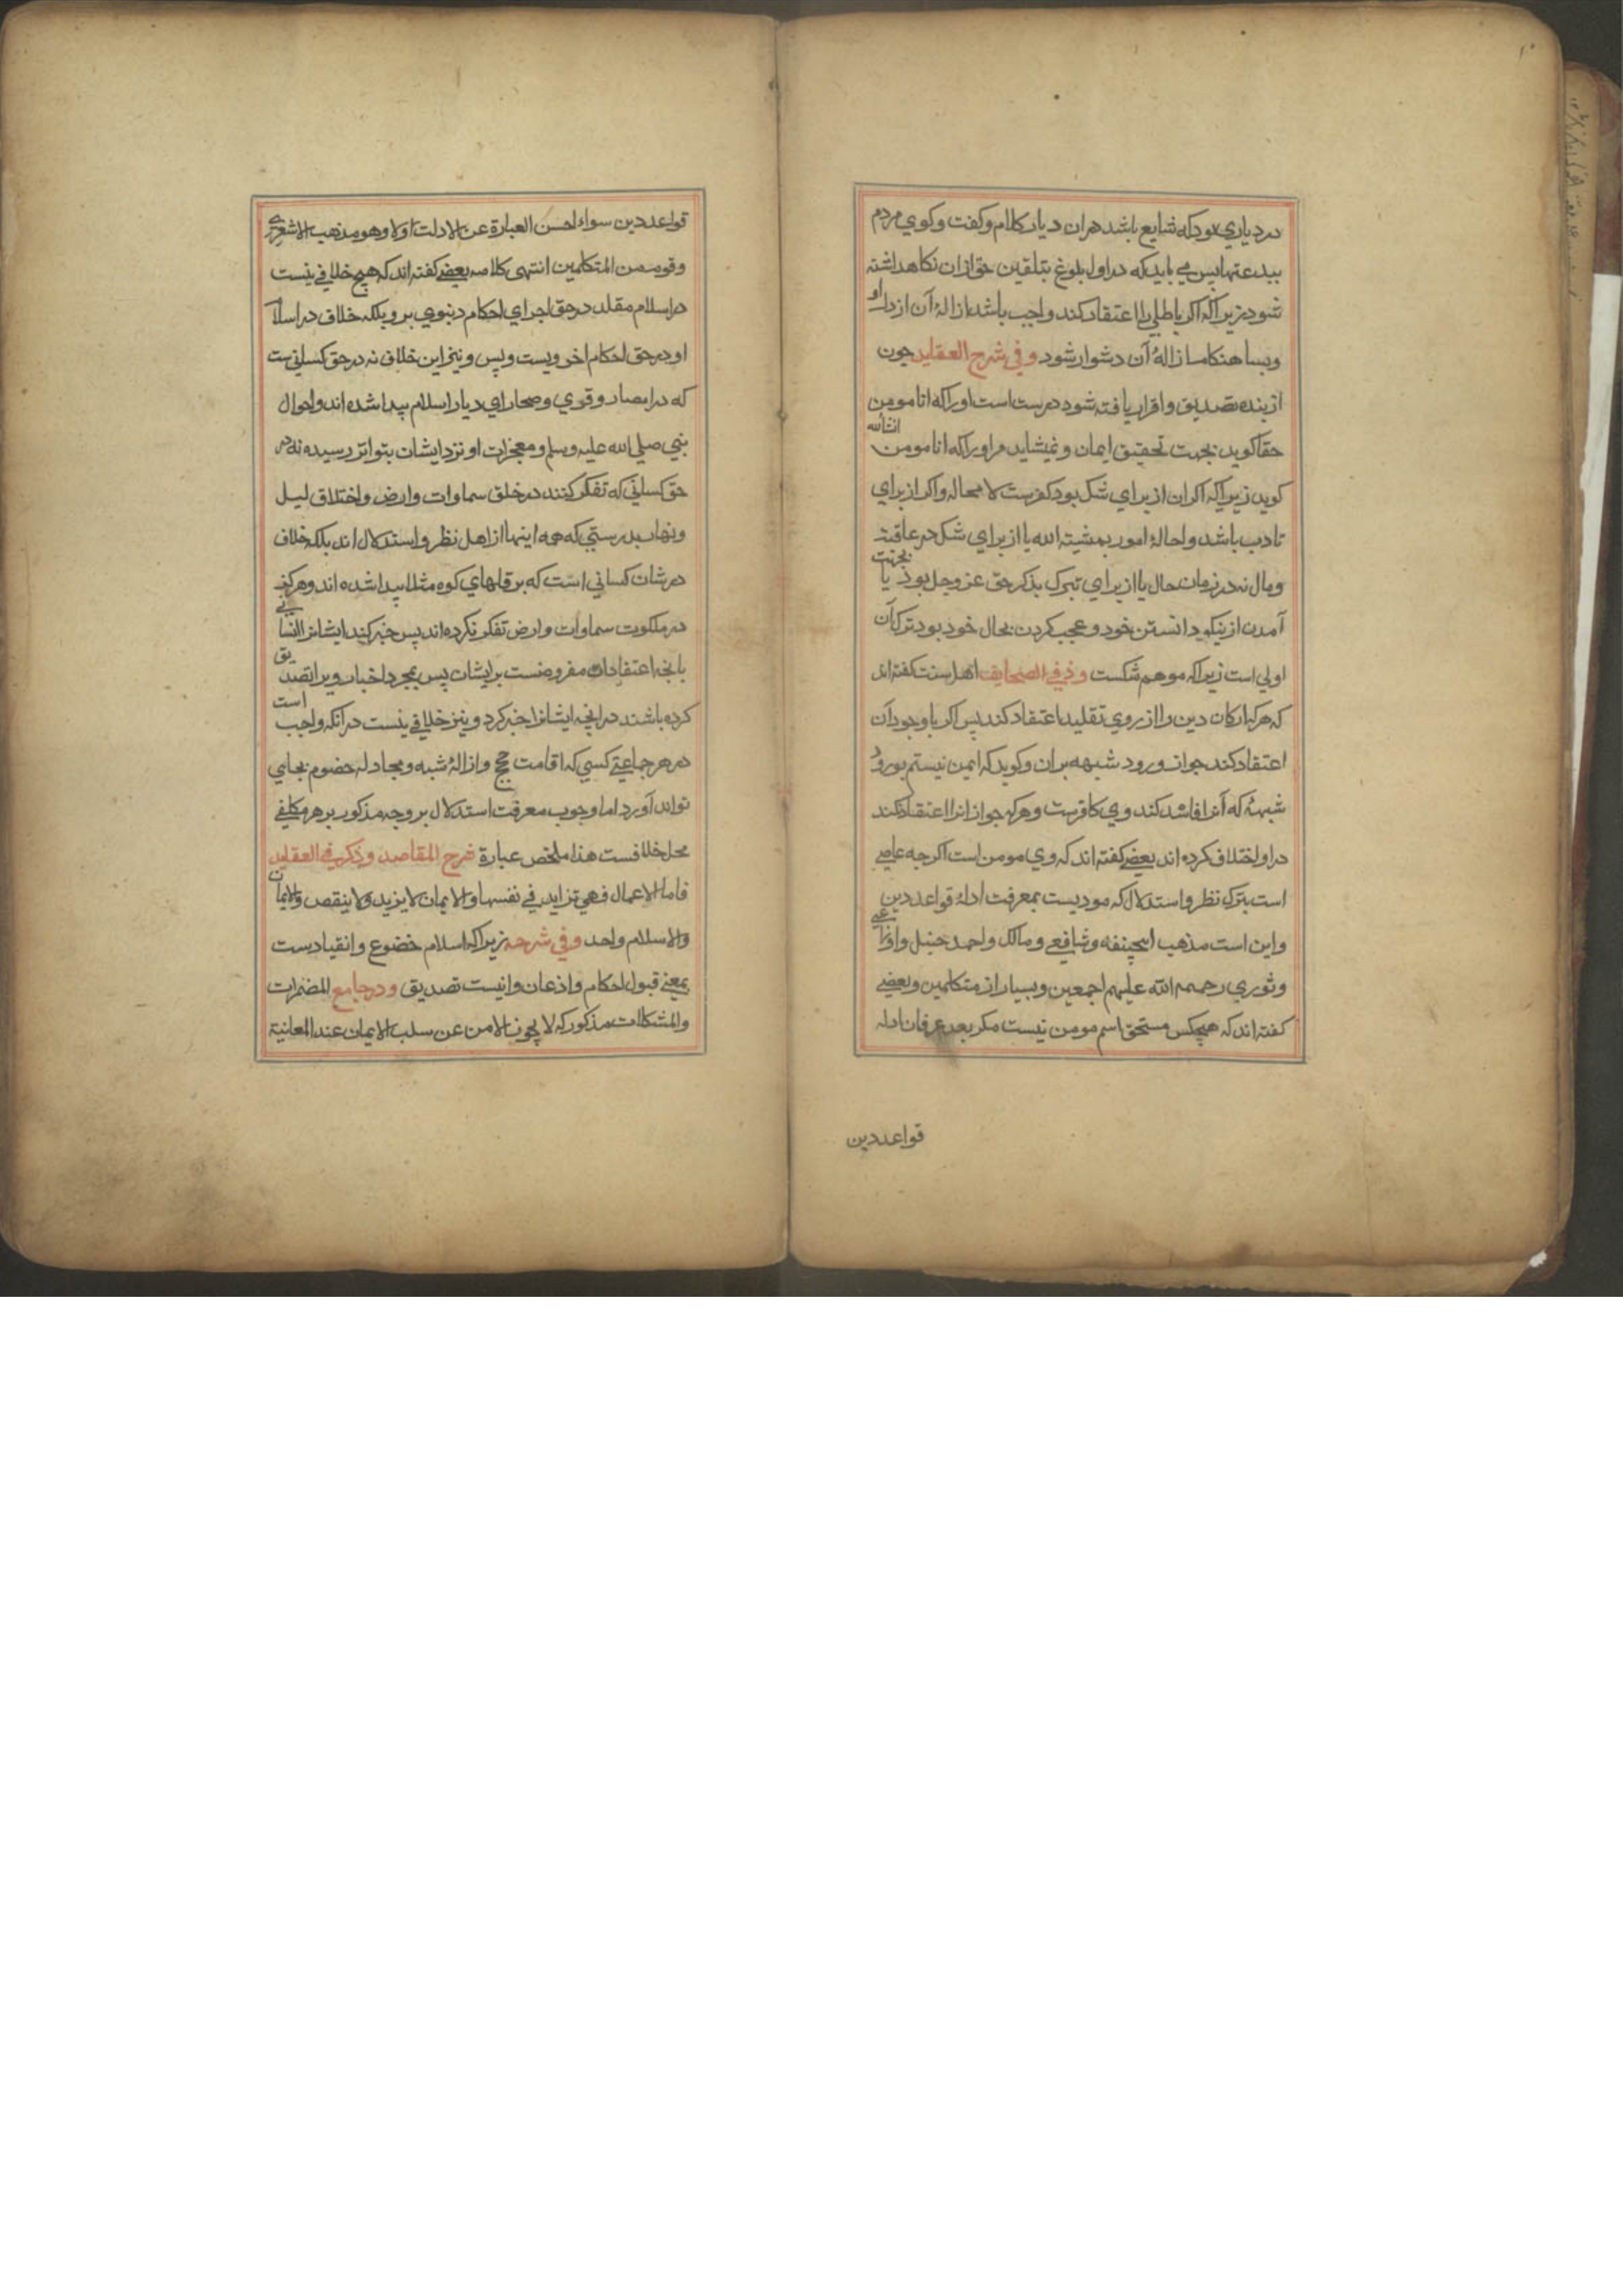 در دیاری بود که شایع باشد در ان دیار کلام و کفت و کوی مردم
ببدعتها پس می باید که در اول بلوغ بتلقین حق ازان نکاهداشته
شود زیراکه اکر باطلی را اعتقاد کند واجب باشد ازالۀ آن از دل او
و بسا هنکام ازالۀ آن دشوار شود وفی شرح العقاید چون
از بنده تصدیق و اقرار یافته شود درست است اوراکه انا مومن
حقا کوید بجهت تحقیق ایمان و نمیشاید مر اوراکه انا مومن انشاالله
کوید زیراکه اکر ان از برای شک بود کفرست لا محاله و اکر از برای
تادب باشد و احالۀ امور بمشیته الله یا از برای شک در عاقبت
ومال نه در زمان حال یا از برای تبرک بذکر حق عز وجل بود یا بجهت
آمدن از نیکو دانستن خود و عجب کردن بحال خود بود ترک آن
اولی است زیراکه موهم شکست وفی الصحایف اهل سنت کفته اند
که هرکه ارکان دین را از روی تقلید اعتقاد کند پس اکر باوجود آن
اعتقاد کند جواز ورود شبهه بران و کوید که ایمن نیستم بورود
شبهۀ که آنرا فاسد کند وی کافرست و هرکه جواز انرا اعتقاد نکند
در او اختلاف کرده اند بعضی کفته اند که وی مومن است اکرچه عاصی
است بترک نظر و استدلال که مودیست بمعرفت ادلۀ قواعد دین
و این است مذهب ابیحنیفه و شافعی و مالک و احمد حنبل و اوزاعی
و ثوری رحمهم الله علیهم اجمعین و بسیار از متکلمین و بعضی
کفته اند که هیچکس مستحق اسم مومن نیست مکر بعد عرفان ادله
قواعد دین
قواعد دین سواء احسن العبارة عن الادلت اولا وهو مذهب الاشعری
وقوم من المتکلمین انتهی کلامه بعضی کفته اند که هیچ خلافی نیست
در اسلام مقلد در حق اجرای احکام دنیوی برو بلکه خلاف در اسلام
او در حق احکام اخرویست و پس و نیز این خلاف نه در حق کسانیست
که در امصار و قری و صحارای دیار اسلام پیدا شده اند و احوال
نبی صلی الله علیه وسلم و معجزات او نزد ایشان بتواتر رسیده نه در
حق کسانی که تفکر کنند در خلق سماوات وارض و اختلاف لیل
ونهار بدرستی که همه اینها از اهل نظر و استدلال اند بلکه خلاف
در شان کسانی است که بر قلهای کوه مثلا پیدا شده اند و هرکز
در ملکوت سماوات وارض تفکر نکرده اند پس خبر کند ایشانرا انسانی
بانچه اعتقاد ان مفروضست بر ایشان پس بمجرد اخبار ویرا تصدیق
کرده باشند در انچه ایشانرا خبر کرد و نیز خلافی نیست در آنکه واجب است
در هر جماعتی کسی که اقامت حجج و ازالۀ شبه و مجادله خصوم بجای
تواند آورد اما وجوب معرفت استدلال بر وجه مذکور بر هر مکلفی
محل خلافست هذا ملخص عبارة شرح المقاصد وذکر فی العقاید
فاما الاعمال فهی تزاید فی نفسها و الایمان لا یزید ولا ینقص والایمان
والاسلام واحد وفی شرحه زیراکه اسلام خضوع و انقیادست
بمعنی قبول احکام و اذعان و انیست تصدیق و در جامع المضمرات
والمشکلات مذکور که لا یجوز الامن عن سلب الایمان عند المعاینة